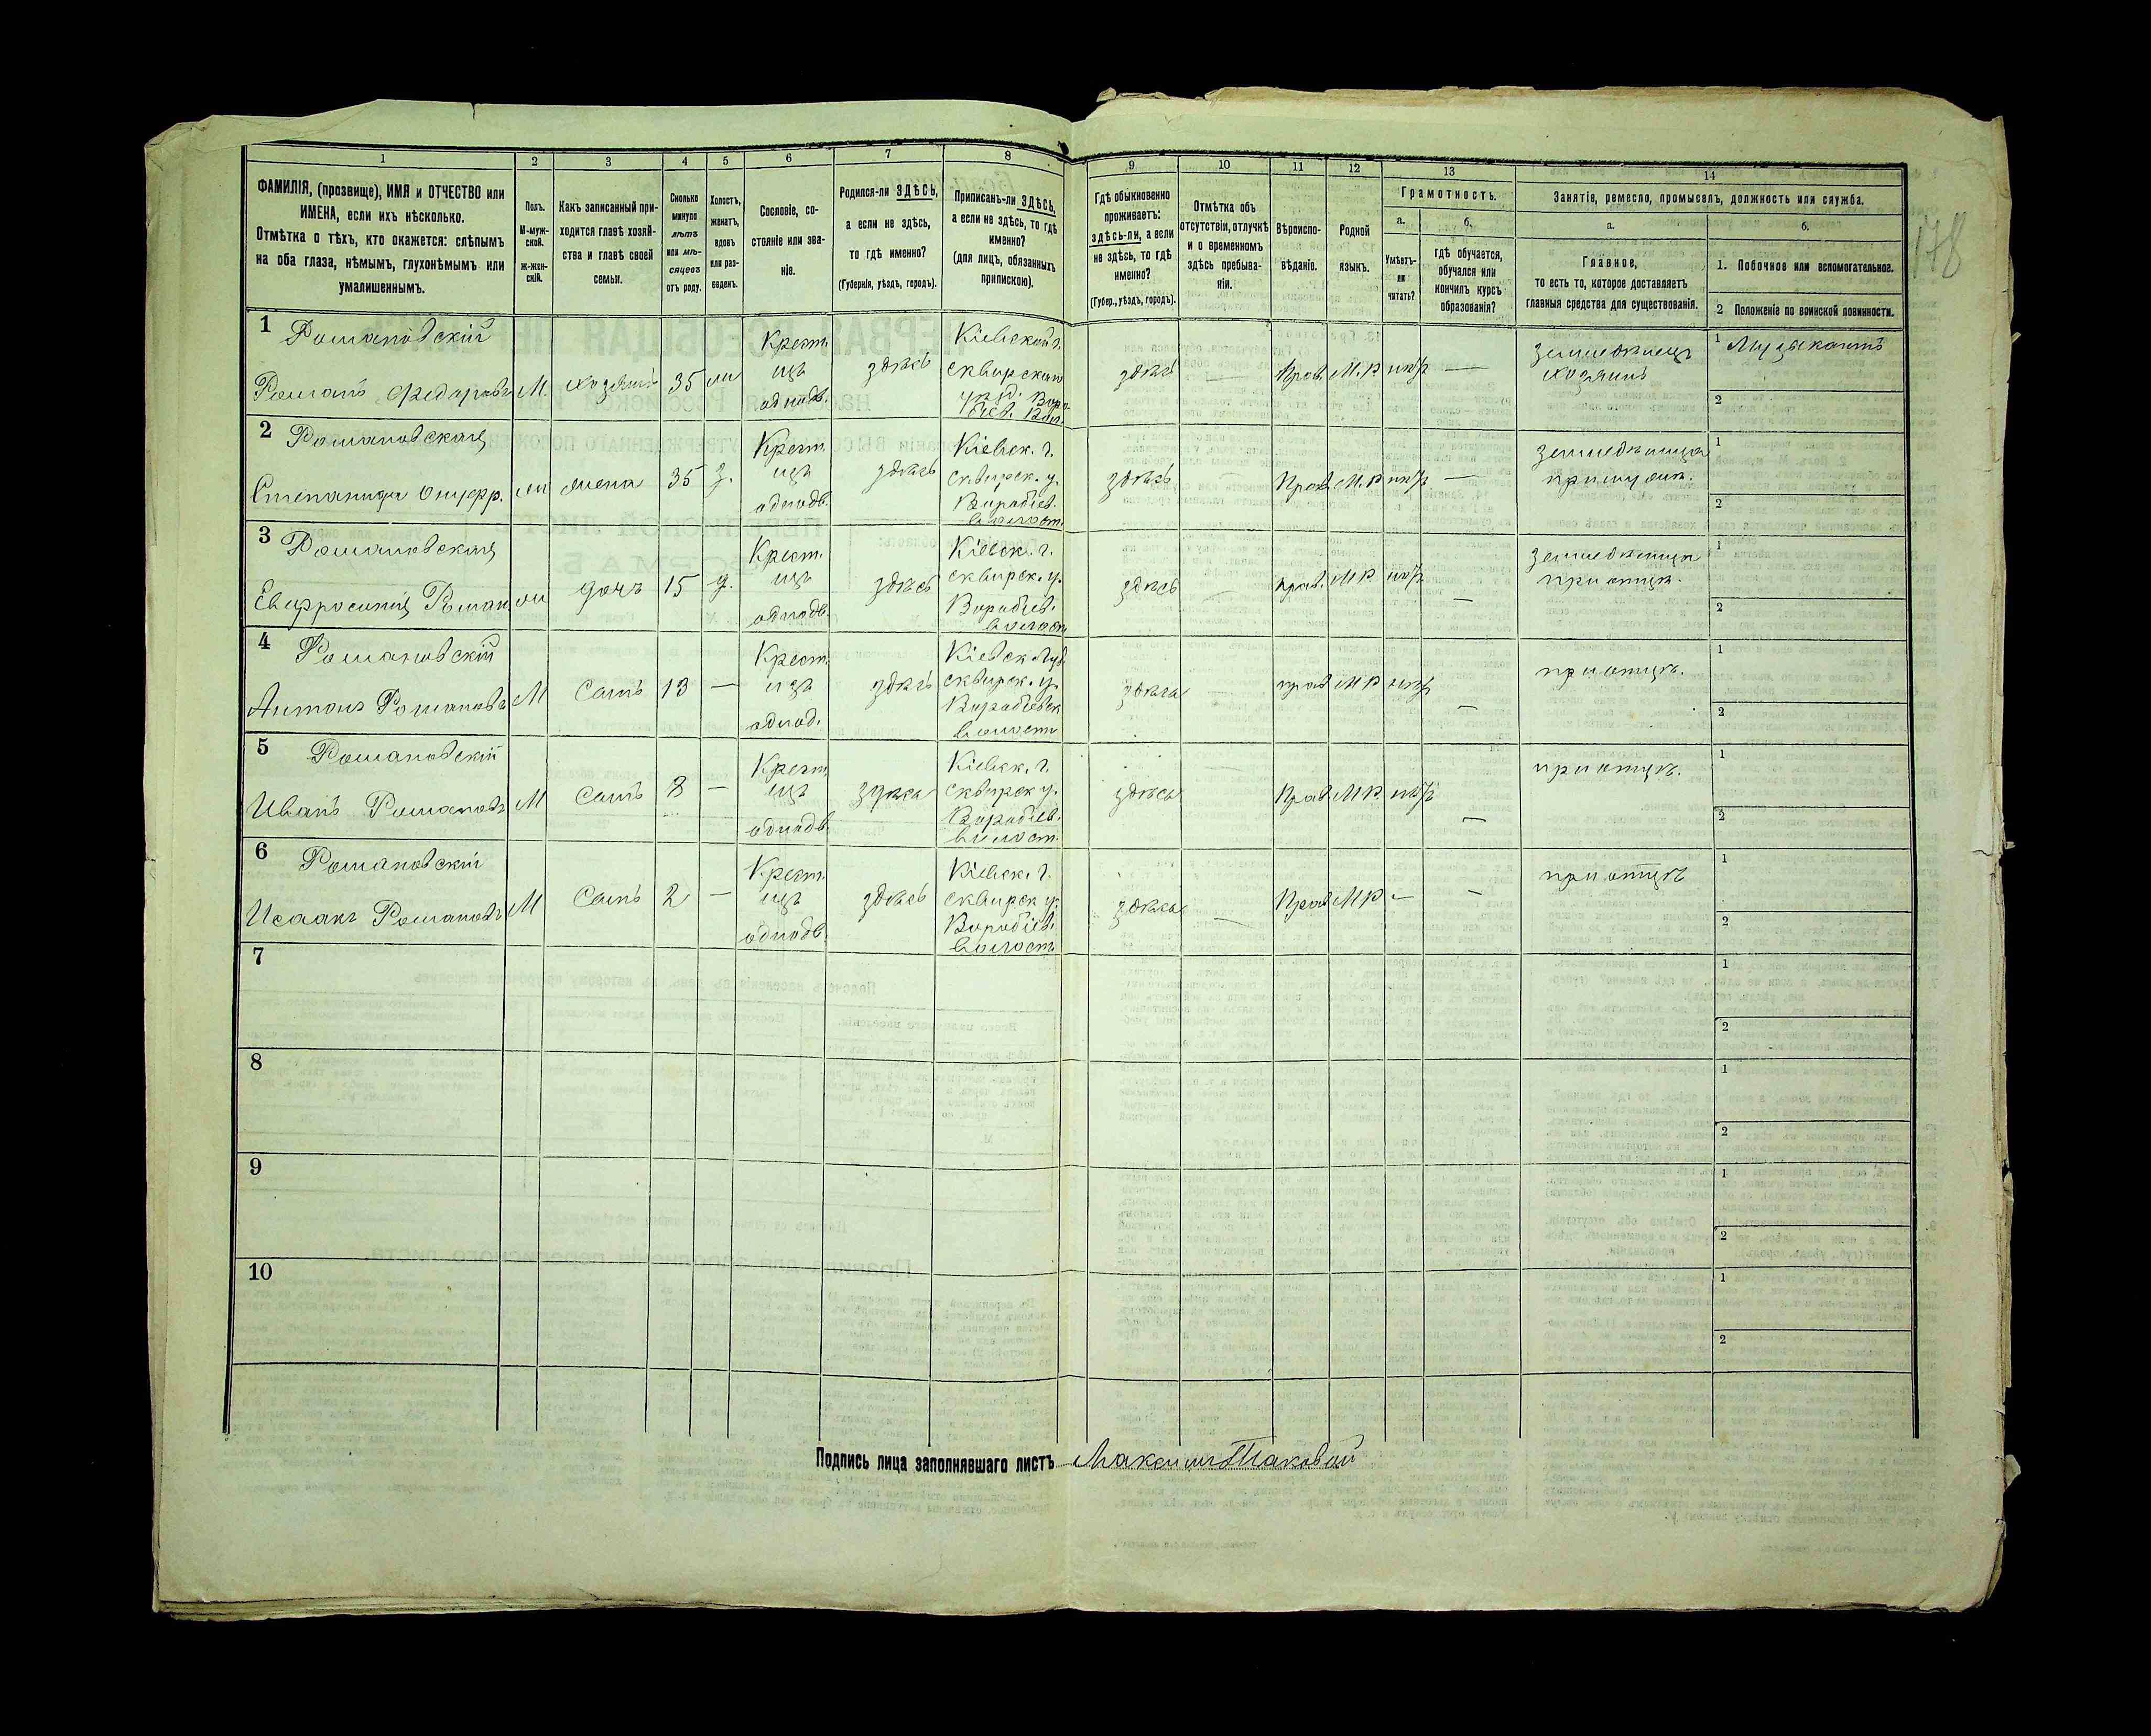 1 2 3 4 5 6 7 8 9 10 11 12 13 14
ФАМИЛІЯ, (прозвище), ИМЯ и ОТЧЕСТВО или
ИМЕНА, если ихъ нѣсколько.
Отмѣтка о тѣхъ, кто окажется: слѣпымъ
на оба глаза, нѣмымъ, глухонѣмымъ или
умалишеннымъ.
Полъ.
М-муж-
ской.
ж-жен-
скій.
Какъ записанный при-
ходится главѣ хозяй-
ства и главѣ своей
семьи.
Сколько
минуло
лѣтъ
или мѣ-
сяцевъ
отъ роду.
Холостъ,
женатъ,
вдовъ
или раз-
веденъ.
Сословіе, со-
стояніе или зва-
ніе.
Родился-ли ЗДѢСЬ,
а если не здѣсь,
то гдѣ именно?
(Губернія, уѣздъ, городъ).
Приписанъ-ли ЗДѢСЬ,
а если не здѣсь, то гдѣ
именно?
(для лицъ, обязанныхъ
припискою).
Гдѣ обыкновенно
проживаетъ:
здѣсь-ли, а если
не здѣсь, то гдѣ
именно?
(Губер., уѣздъ, городъ).
Отмѣтка объ
отсутствіи, отлучкѣ
и о временномъ
здѣсь пребыва-
ніи.
Вѣроиспо-
вѣданіе.
Родной
языкъ.
Грамотность.
а.
Умѣетъ-
ли
читать?
б.
гдѣ обучается,
обучался или
кончилъ курсъ
образованія?
Занятія, ремесло, промыселъ, должность или служба.
а.
Главное,
то есть то, которое доставляетъ
главныя средства для существованія.
б.
1. Побочное или вспомогательное.
2 Положеніе по воинской повинности.
178
1 Романовскій
Романъ Федоровъ М. хозяинъ 35 ж
Крест.
изъ
однодв.
здѣсь
Кіевской г.
сквирскаго
уѣзд. Воро-
біев. Вол.
здѣсь — Прав. М.Р. нѣтъ —
земледѣлецъ
хозяинъ
1 Музыкантъ
2
2 Романовская
ж жена 35 з.
Крест.
изъ
однодв.
здѣсь
Кіевск. г.
сквирск. у.
Воробіев.
волост.
здѣсь — Прав М.Р нѣтъ —
земледѣлица
при мужѣ.
1
2
3 Романовская
Евфросинія Роман. ж дочь 15 д.
Крест.
изъ
однодв.
здѣсь
Кіевск. г.
сквирск. у.
Воробіев.
волост
здѣсь — прав. МР нѣтъ —
земледѣлица
при отцѣ.
1
2
4 Романовскій
Антонъ Романовъ М Сынъ 13 —
Крест.
изъ
однод.
здѣсь
Кіевск губ.
сквирск. у.
Воробіевск
волост
здѣсь — прав МР нѣтъ —
при отцѣ.
1
2
5 Романовскій
Иванъ Романовъ М Сынъ 8 —
Крест.
изъ
однодв.
здѣсь
Кіевск. г.
сквирск у.
Воробіев.
волост.
здѣсь Прав МР. нѣтъ —
при отцѣ.
1
2
6 Романовскій
Исаакъ Романовъ М Сынъ 2 —
Крест.
изъ
однодв.
здѣсь
Кіевск. г.
сквирск у.
Воробіев.
волост.
здѣсь — Прав МР — —
при отцѣ
1
2
7
1
2
8
1
2
9
1
2
10
1
2
Подпись лица заполнявшаго листъ Максим